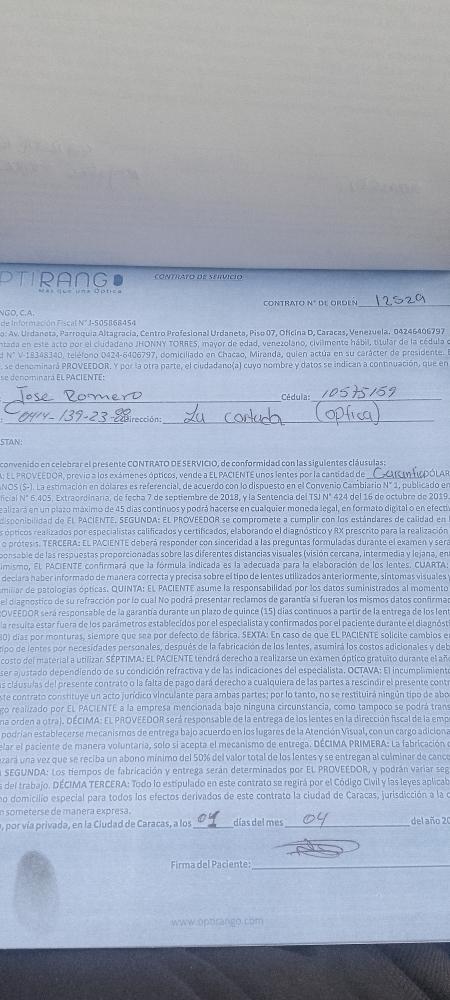 OPTIRANGO
Más que una Óptica
CONTRATO DE SERVICIO
CONTRATO N° DE ORDEN 12529
NGO, C.A.
de Información Fiscal N° J-505868454
o: Av. Urdaneta, Parroquia Altagracia, Centro Profesional Urdaneta, Piso 07, Oficina D, Caracas, Venezuela. 04246406797
ntada en este acto por el ciudadano JHONNY TORRES, mayor de edad, venezolano, civilmente hábil, titular de la cédula d
d N° V-18348340, teléfono 0424-6406797, domiciliado en Chacao, Miranda, quien actúa en su carácter de presidente. E
, se denominará PROVEEDOR. Y por la otra parte, el ciudadano(a) cuyo nombre y datos se indican a continuación, que en
se denominará EL PACIENTE:
Jose Romero Cédula: 10575159
0414-139-23-98 Dirección: La cortada (optica)
STAN:
convenido en celebrar el presente CONTRATO DE SERVICIO, de conformidad con las siguientes cláusulas:
: EL PROVEEDOR, previo a los exámenes ópticos, vende a EL PACIENTE unos lentes por la cantidad de Garantia DÓLAR
ANOS ($-). La estimación en dólares es referencial, de acuerdo con lo dispuesto en el Convenio Cambiario N° 1, publicado en
ficial N° 6.405, Extraordinaria, de fecha 7 de septiembre de 2018, y la Sentencia del TSJ N° 424 del 16 de octubre de 2019.
ealizará en un plazo máximo de 45 días continuos y podrá hacerse en cualquier moneda legal, en formato digital o en efecti
disponibilidad de EL PACIENTE. SEGUNDA: EL PROVEEDOR se compromete a cumplir con los estándares de calidad en l
s ópticos realizados por especialistas calificados y certificados, elaborando el diagnóstico y RX prescrito para la realización
o prótesis. TERCERA: EL PACIENTE deberá responder con sinceridad a las preguntas formuladas durante el examen y será
ponsable de las respuestas proporcionadas sobre las diferentes distancias visuales (visión cercana, intermedia y lejana, en
imismo, EL PACIENTE confirmará que la fórmula indicada es la adecuada para la elaboración de los lentes. CUARTA:
declara haber informado de manera correcta y precisa sobre el tipo de lentes utilizados anteriormente, síntomas visuales y
miliar de patologías ópticas. QUINTA: EL PACIENTE asume la responsabilidad por los datos suministrados al momento
el diagnostico de su refracción por lo cual No podrá presentar reclamos de garantía si fueran los mismos datos confirmad
OVEEDOR será responsable de la garantía durante un plazo de quince (15) días continuos a partir de la entrega de los lent
la resulta estar fuera de los parámetros establecidos por el especialista y confirmados por el paciente durante el diagnósti
30) días por monturas, siempre que sea por defecto de fábrica. SEXTA: En caso de que EL PACIENTE solicite cambios en
tipo de lentes por necesidades personales, después de la fabricación de lentes, asumirá los costos adicionales y deb
costo del material a utilizar. SÉPTIMA: EL PACIENTE tendrá derecho a realizarse un examen óptico gratuito durante el año
ser ajustado dependiendo de su condición refractiva y de las indicaciones del especialista. OCTAVA: El incumplimiento
as cláusulas del presente contrato o la falta de pago dará derecho a cualquiera de las partes a rescindir el presente cont
ste contrato constituye un acto jurídico vinculante para ambas partes; por lo tanto, no se restituirá ningún tipo de abo
go realizado por EL PACIENTE a la empresa mencionada bajo ninguna circunstancia, como tampoco se podrá trans
na orden a otra). DÉCIMA: EL PROVEEDOR será responsable de la entrega de los lentes en la dirección fiscal de la emp
podrían establecerse mecanismos de entrega bajo acuerdo en los lugares de la Atención Visual, con un cargo adiciona
elar el paciente de manera voluntaria, solo si acepta el mecanismo de entrega. DÉCIMA PRIMERA: La fabricación d
zará una vez que se reciba un abono mínimo del 50% del valor total de los lentes y se entregan al culminar de canc
SEGUNDA: Los tiempos de fabricación y entrega serán determinados por EL PROVEEDOR, y podrán variar seg
s del trabajo. DÉCIMA TERCERA: Todo lo estipulado en este contrato se regirá por el Código Civil y las leyes aplicab
mo domicilio especial para todos los efectos derivados de este contrato la ciudad de Caracas, jurisdicción a la c
n someterse de manera expresa.
, por vía privada, en la Ciudad de Caracas, a los 04 días del mes 04 del año 20
Firma del Paciente:
www.optirango.com